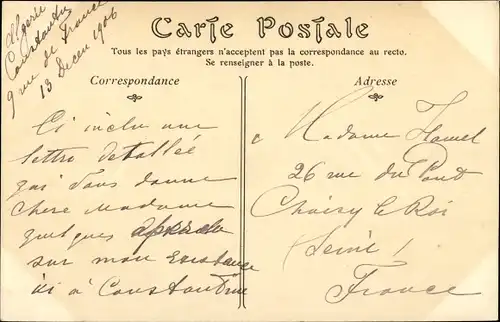 Algerie
Constantine
9 rue de France
13 Decem 1906
Carte Postale
Tous les pays étrangers n'acceptent pas la correspondance au recto.
Se renseigner à la poste.
Correspondance
Ci inclu une
lettre detaillée
qui vous donne
chere Madame
quelques
sur mon Existance
ici à Constantine
Adresse
Madame Hamel
26 rue du Pont
Choisy le Roi
(Seine)
France